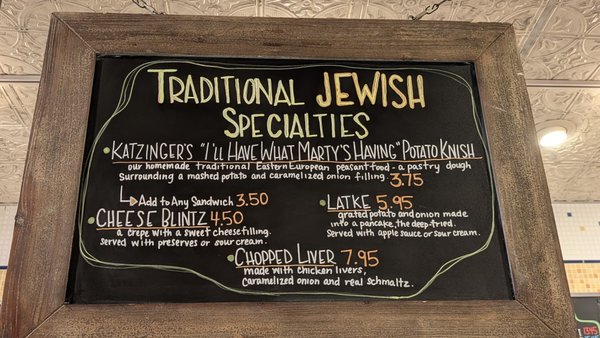 TRADITIONAL JEWISH
SPECIALTIES
• KATZINGER'S "I'LL HAVE WHAT MARTY'S HAVING" POTATO KNISH
our homemade traditional Eastern European peasant food - a pastry dough
Surrounding a mashed potato and caramelized onion filling. 3.75
Add to Any Sandwich 3.50
• CHEESE BLINTZ 4.50
a crepe with a sweet cheese filling.
served with preserves or sour cream.
• LATKE 5.95
grated potato and onion made
into a pancake, the deep-fried.
Served with apple sauce or sour cream.
• CHOPPED LIVER 7.95
made with chicken livers,
caramelized onion and real schmaltz.